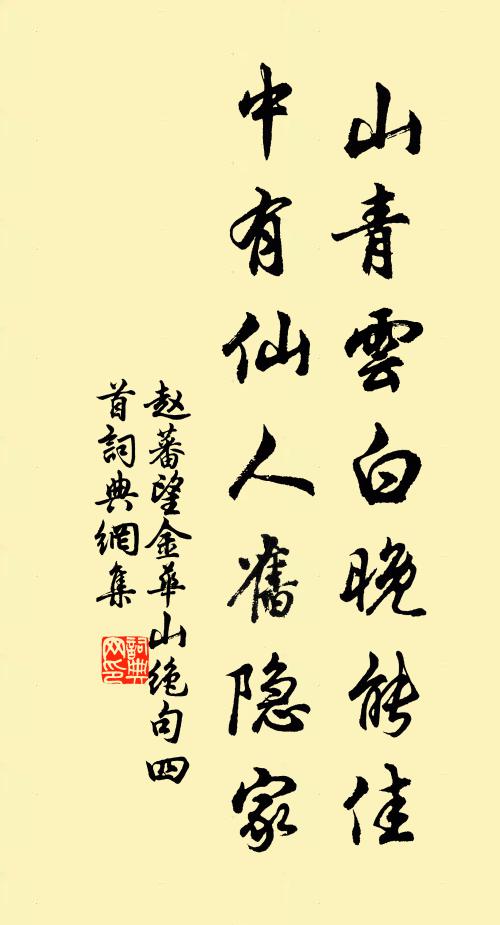 山青雲白晚能佳
中有仙人舊隐家
赵蕃望金華山绝句四
首詞典網集
詞典
网印